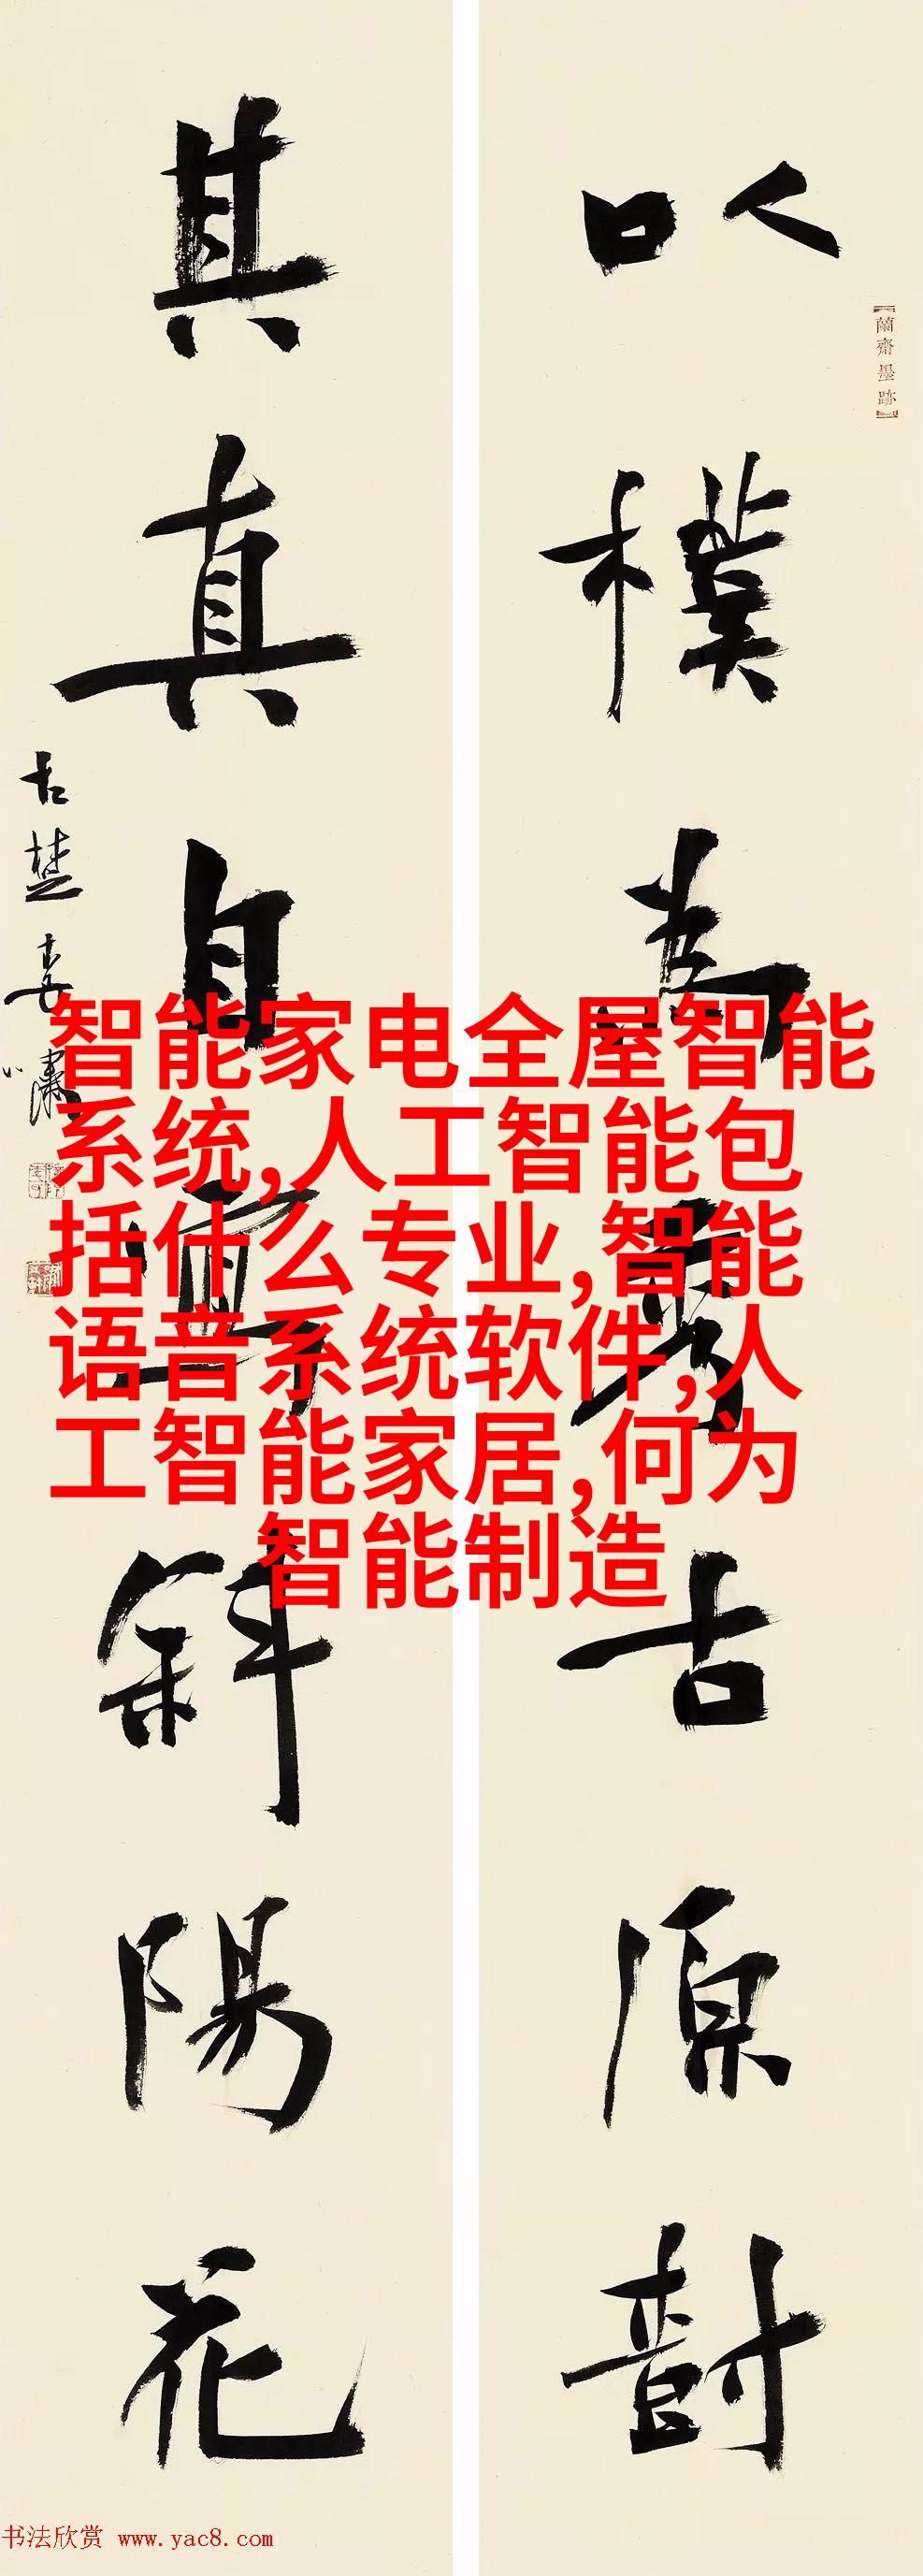 以樸為秀古原樹
【蘭齋墨跡】
其真自寫斜陽花
古楚
智能家电全屋智能
系统,人工智能包
括什么专业,智能
语音系统软件,人
工智能家居,何为
智能制造
书法欣赏 www.yac8.com